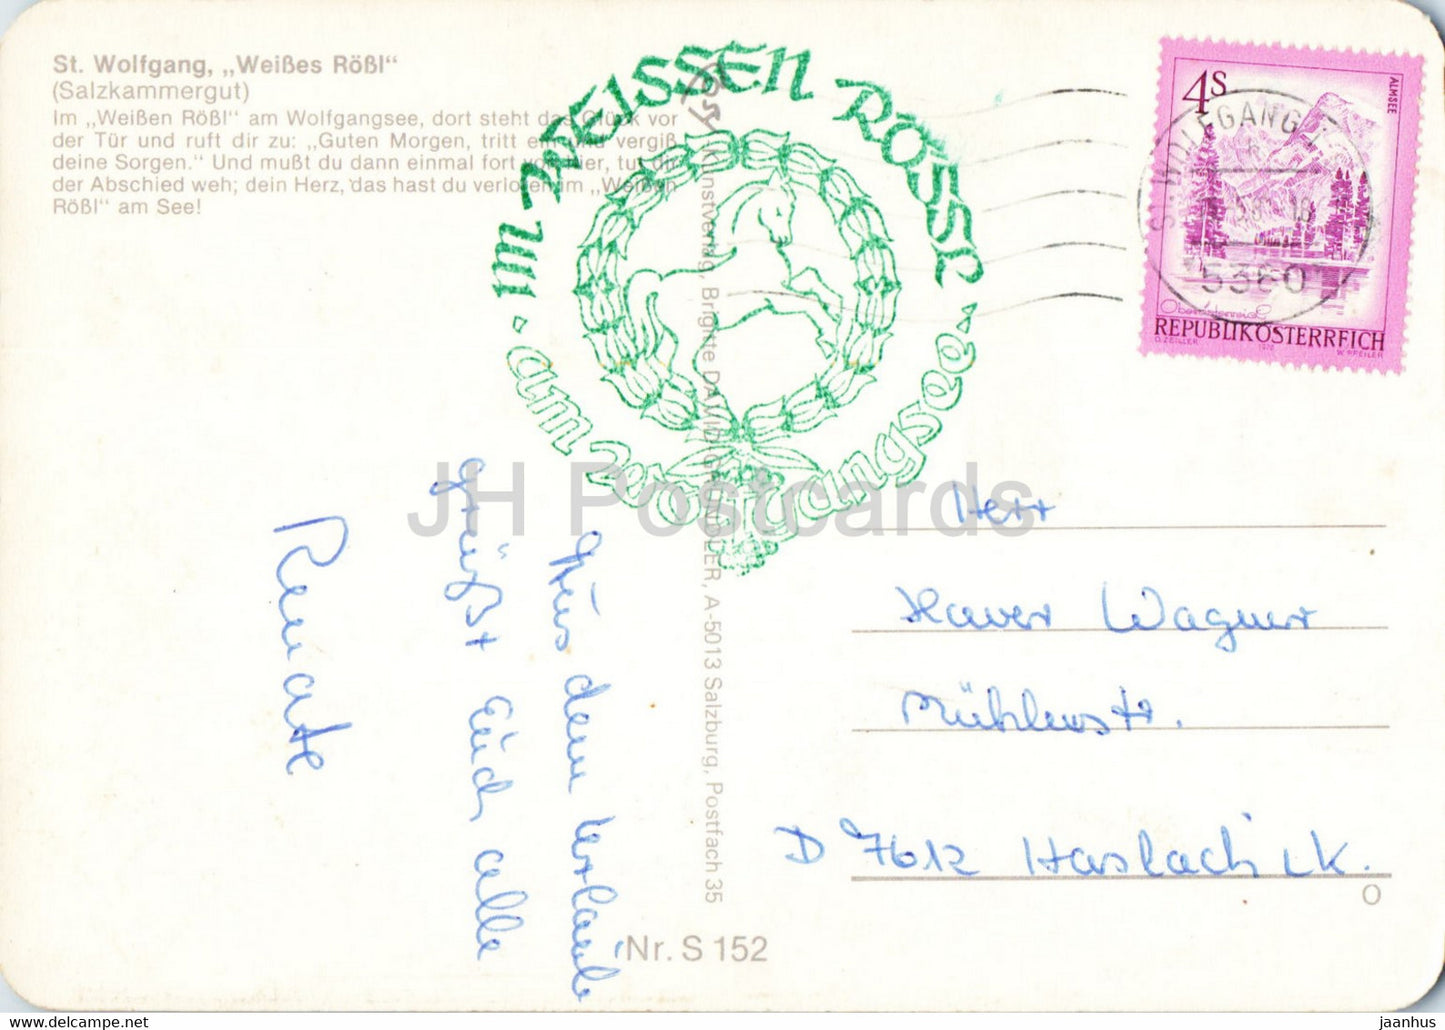 St. Wolfgang, „Weißes Rößl“
(Salzkammergut)
Im „Weißen Rößl“ am Wolfgangsee, dort steht das Glück vor
der Tür und ruft dir zu: „Guten Morgen, tritt ein und vergiß
deine Sorgen.“ Und mußt du dann einmal fort von hier, tut dir
der Abschied weh; dein Herz, das hast du verloren im „Weißen
Rößl“ am See!
IM WEISSEN RÖSSL
am Wolfgangsee
Kunstverlag Brigitte DAVID GANDLER, A-5013 Salzburg, Postfach 35
4S
ALMSEE
Oberösterreich
REPUBLIK ÖSTERREICH
O. ZEILLER
1975
W. PFEILER
ST. WOLFGANG
5360
JH Postcards
Aus dem Urlaub
grüßt Euch alle
Renate
Herr
Xaver Wagner
Mühlenstr.
D 7612 Haslach i.K.
Nr. S 152
jaanhus